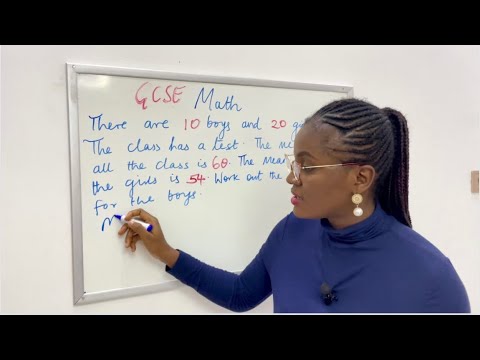 GCSE Math
There are 10 boys and 20
The class has a test. The
all the class is 60. The Mean
the girls is 54. Work out the
for the boys.
M